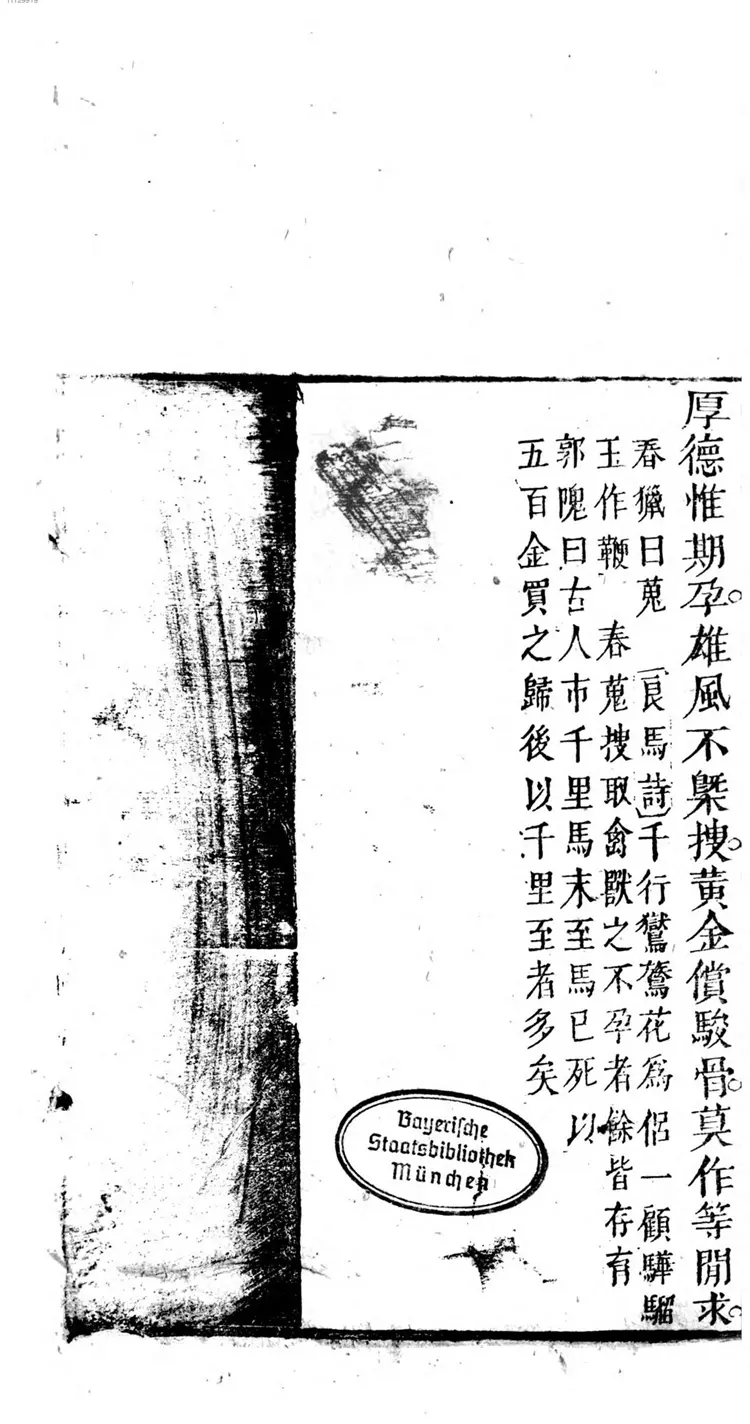 厚德惟期孕。雄風不槩搜。黄金償駿骨。莫作等閒求。
春獵日蒐 〔良馬詩〕千行鸞鶱花爲侶一顧驊騮
玉作鞭 春蒐搜取禽獸之不孕者餘皆存有
郭隗曰古人市千里馬末至馬已死以
五百金買之歸後以千里至者多矣
Bayerische
Staatsbibliothek
München